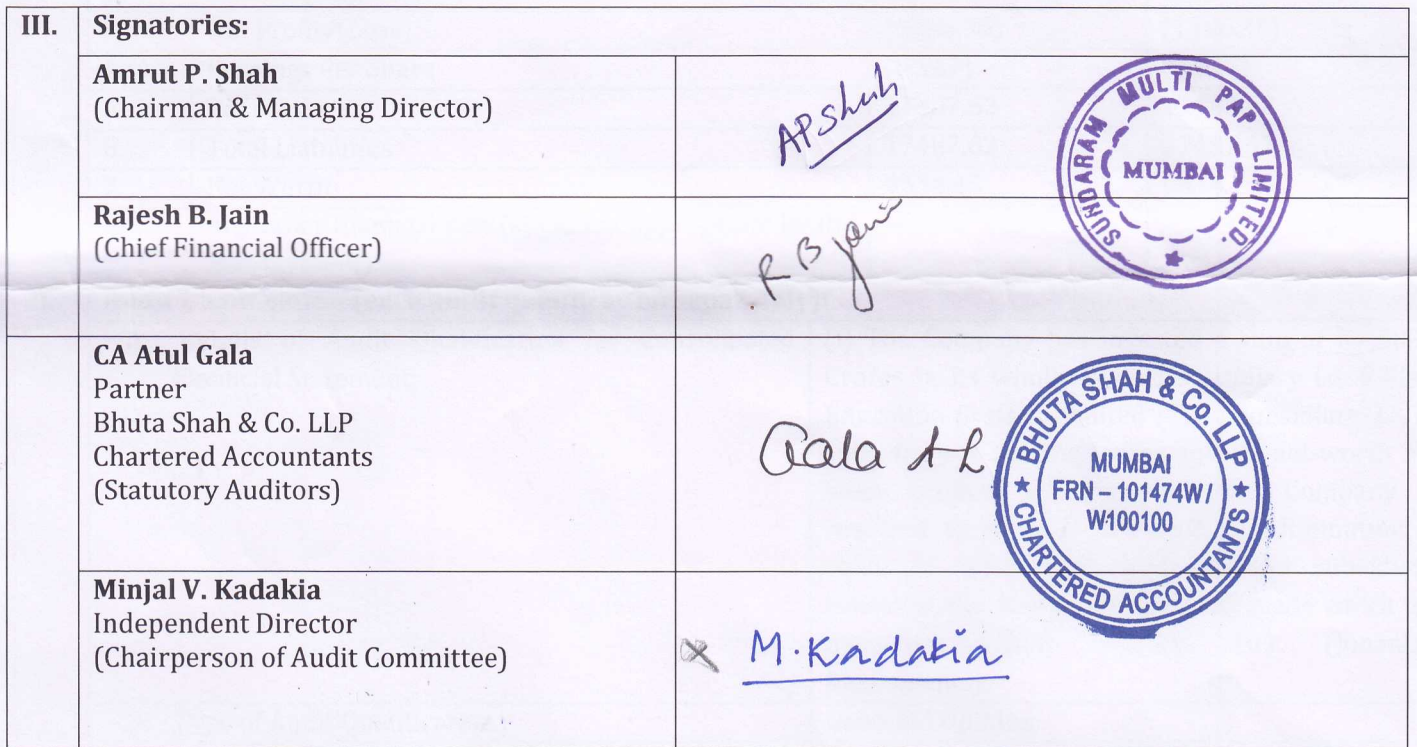 III. Signatories:
Amrut P. Shah
(Chairman & Managing Director)
APShah
SUNDARAM MULTI PAP LIMITED.
MUMBAI
Rajesh B. Jain
(Chief Financial Officer)
R B Jain
CA Atul Gala
Partner
Bhuta Shah & Co. LLP
Chartered Accountants
(Statutory Auditors)
Gala A L
BHUTA SHAH & Co. LLP
MUMBAI
FRN – 101474W/
W100100
CHARTERED ACCOUNTANTS
Minjal V. Kadakia
Independent Director
(Chairperson of Audit Committee)
M. Kadakia